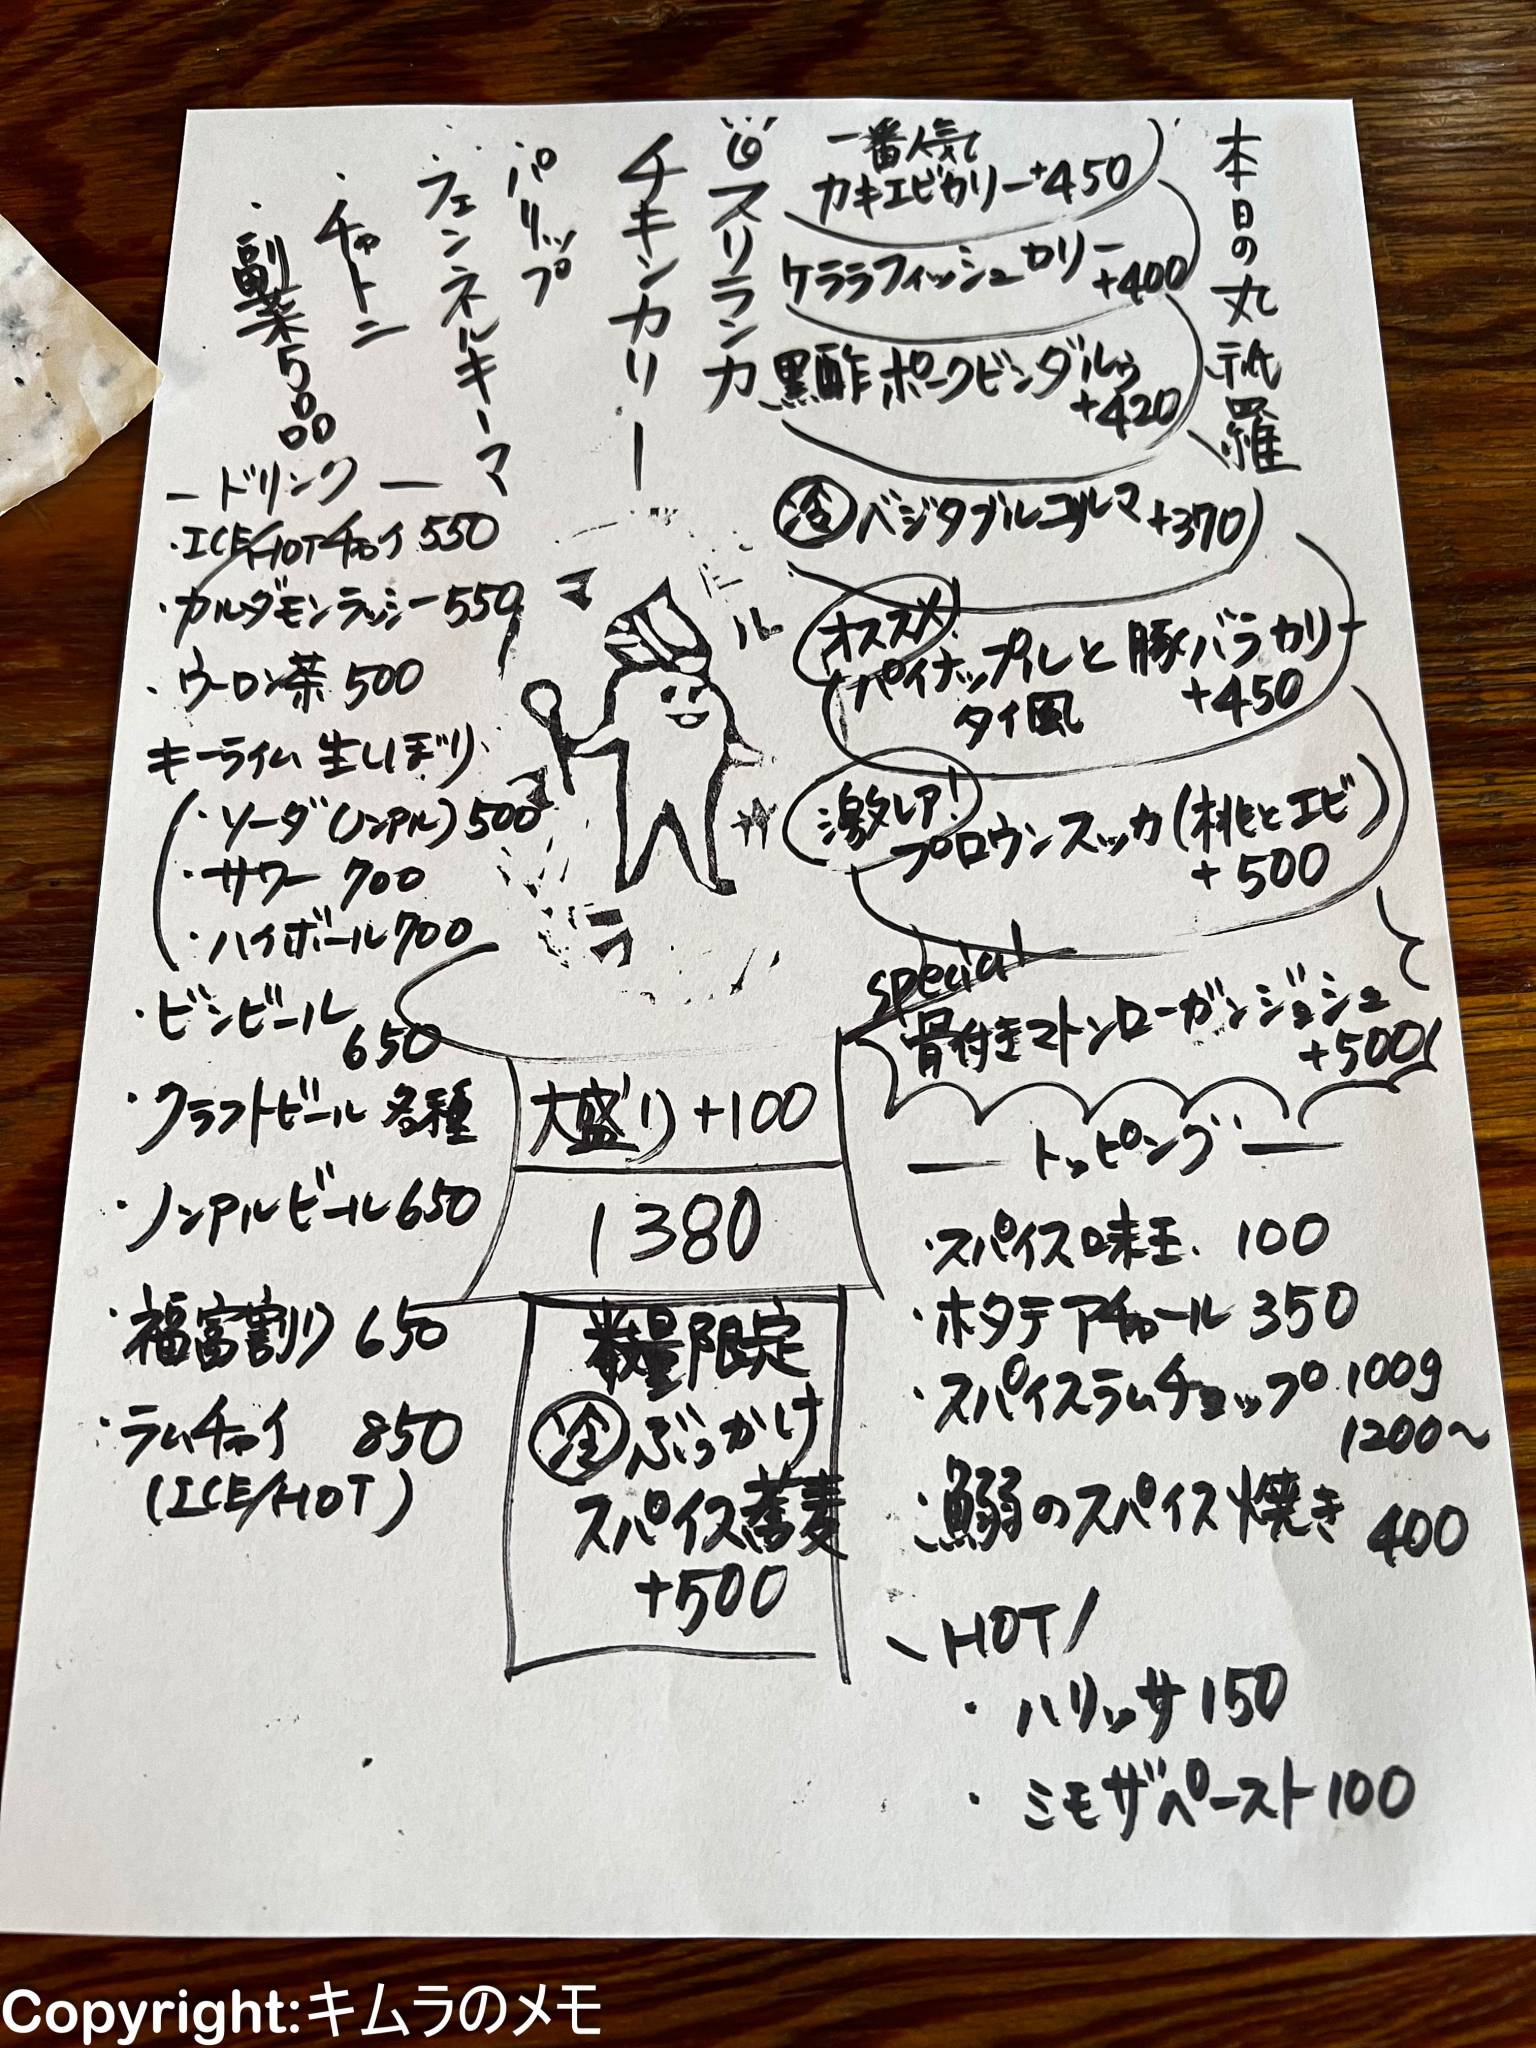 本日の丸秘羅
一番人気
カキエビカリー+450
ケララフィッシュカリー
+400
黒酢ポークビンダルゥ
+420
冷 ベジタブルコルマ+370
オススメ!
パイナップルと豚バラカリー
タイ風 +450
激レア!
プロウンスッカ(桃とエビ)
+500
special
骨付きマトンローガンジョシュ
+500
スリランカ
チキンカリー
パリップ
・フェンネルキーマ
・チャトニ
・副菜5品
ードリンクー
・ICE/HOTチャイ 550
・カルダモンラッシー 550
・ウーロン茶 500
キーライム 生しぼり
・ソーダ(ノンアル)500
・サワー 700
・ハイボール 700
・ビンビール
650
・クラフトビール 各種
・ノンアルビール 650
・福富割り 650
・ラムチャイ 850
(ICE/HOT)
マ
ド
ラ
ール
大盛り+100
1380
数量限定
冷 ぶっかけ
スパイス蕎麦
+500
ートッピングー
・スパイス味玉 100
・ホタテアチャール 350
・スパイスラムチョップ 100g
1200〜
・鰯のスパイス焼き 400
HOT
・ハリッサ 150
・ミモザペースト 100
Copyright:キムラのメモ